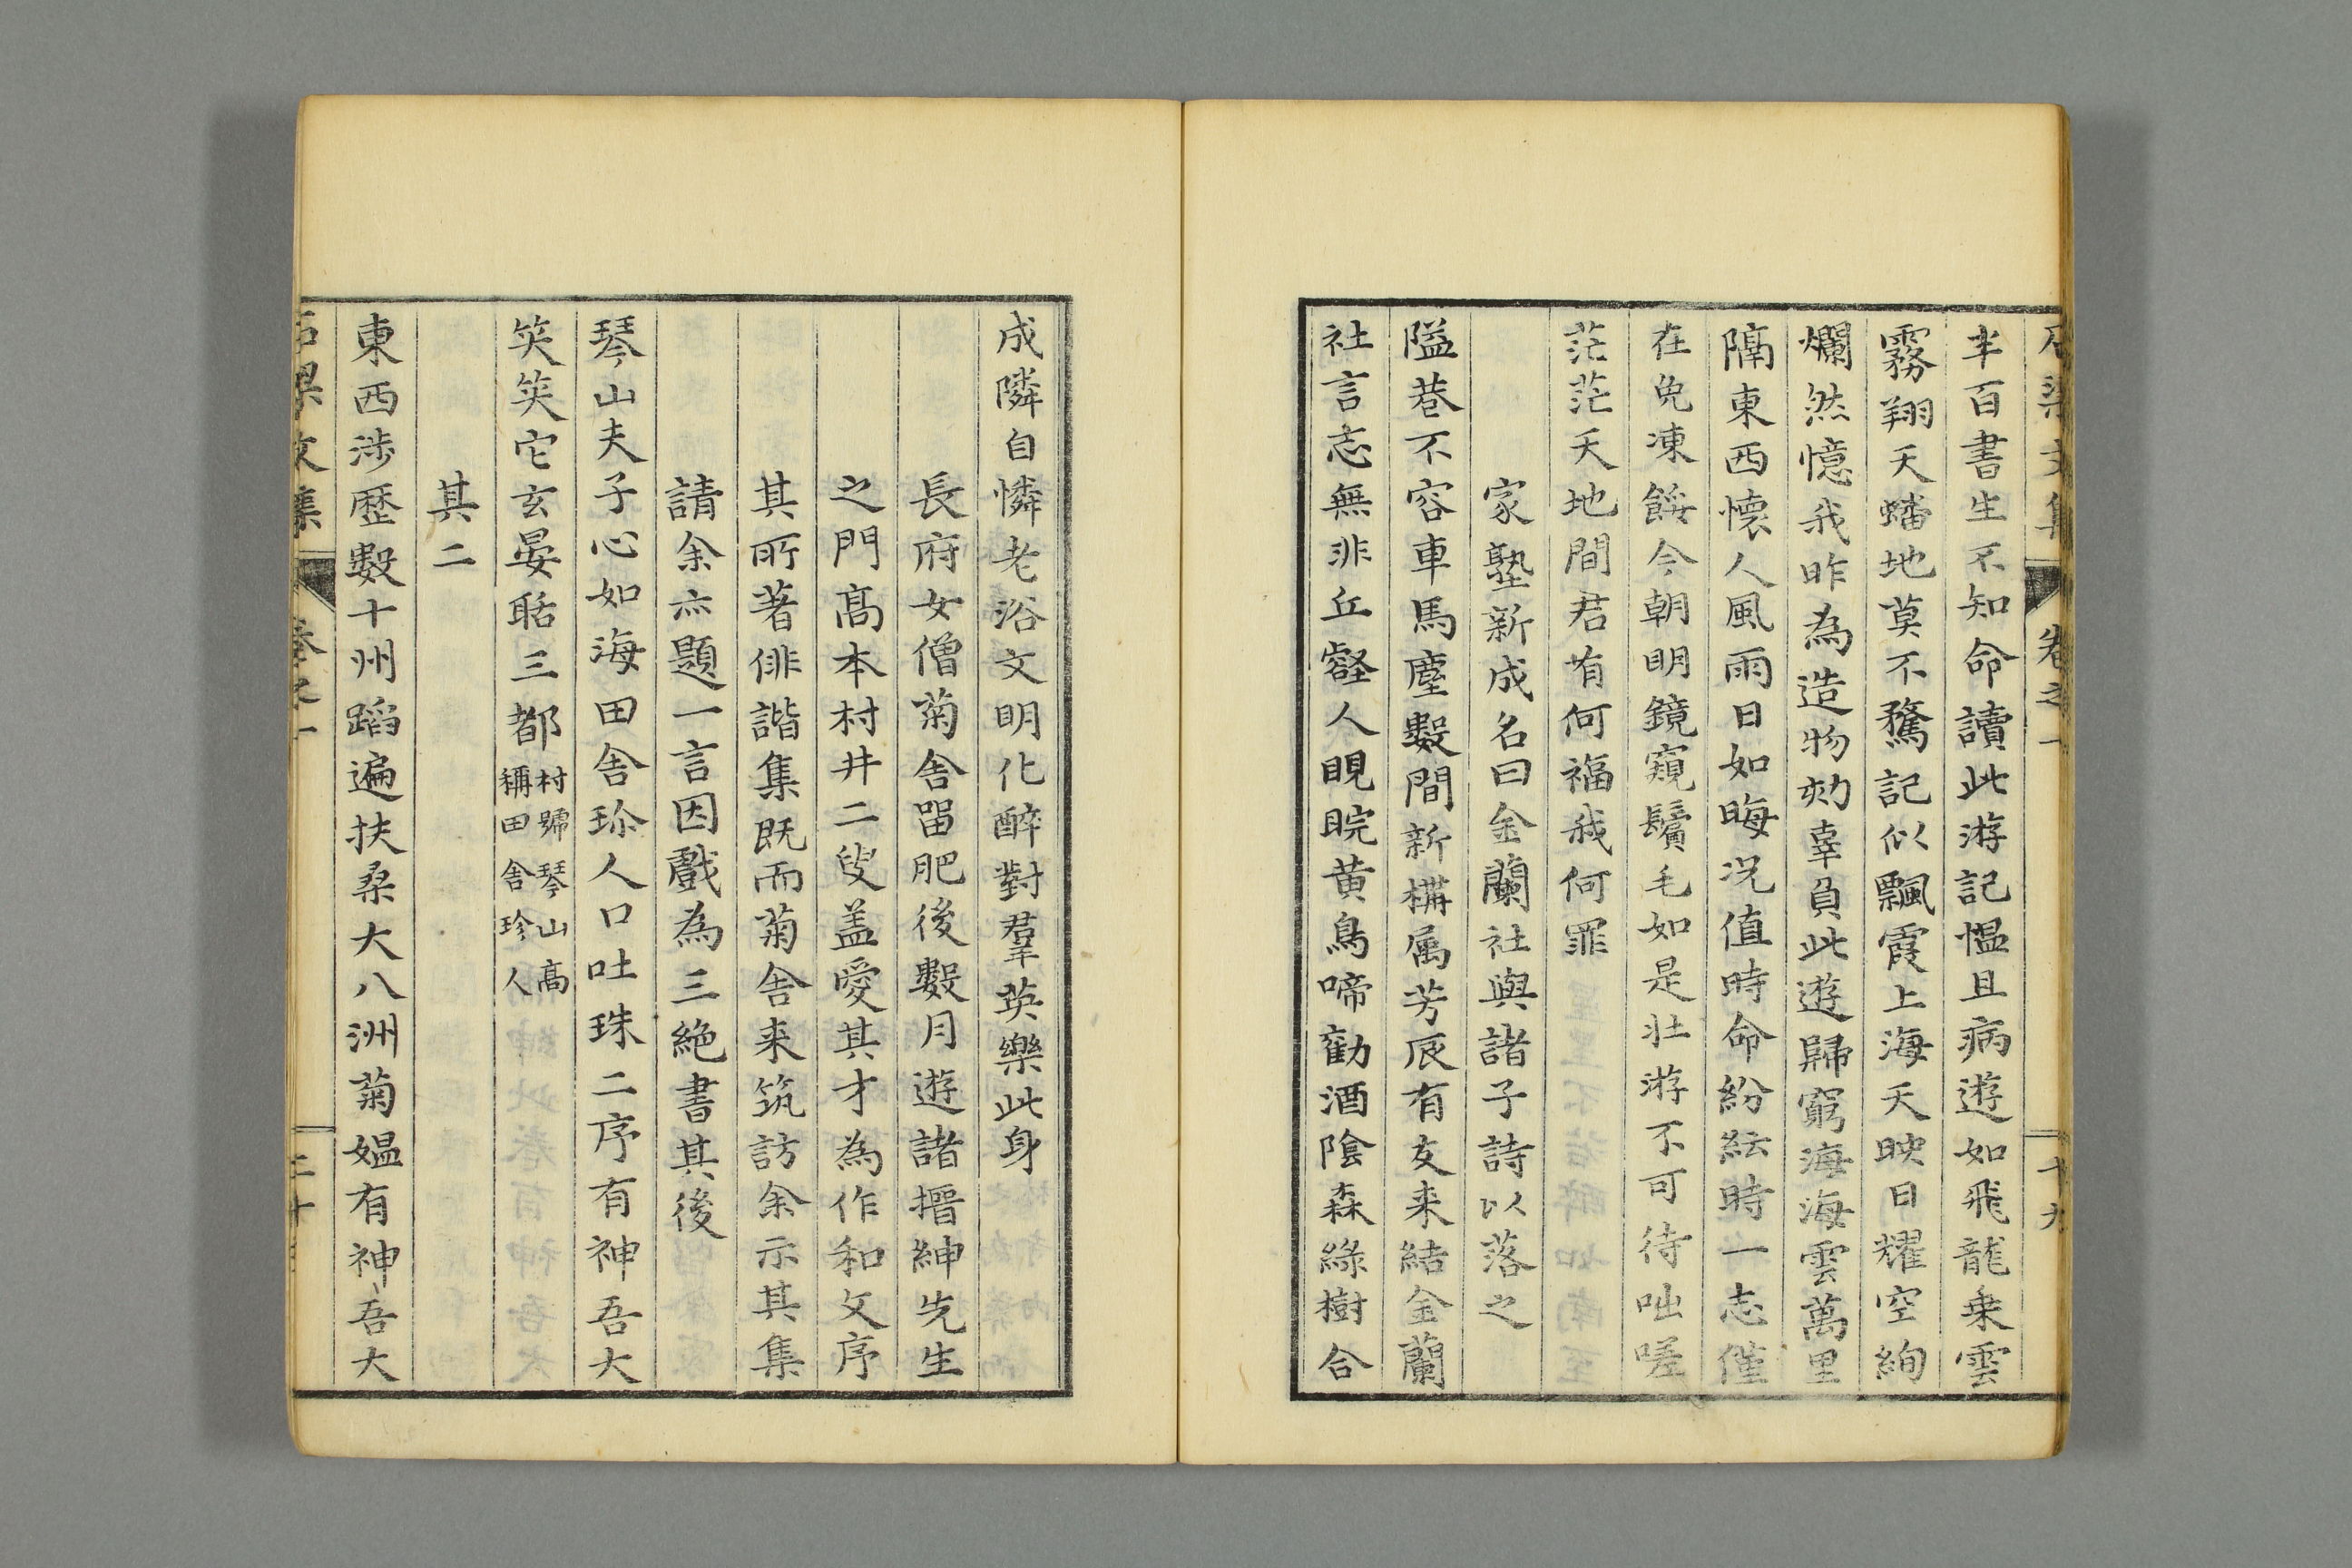 半百書生不知命讀此游記慍且病遊如飛龍乗雲
霧翔天蟠地莫不騖記似飄霞上海天映日耀空絢
爛然憶我昨為造物劾辜負此遊歸窮海海雲萬里
隔東西懷人風雨日如晦况值時命紛紜時一志催
在免凍餒今朝明鏡窺鬢毛如是壯游不可待咄嗟
茫茫天地間君有何福我何罪
家塾新成名曰金蘭社與諸子詩以落之
隘巷不容車馬塵數間新構属芳辰有友来結金蘭
社言志無非丘壑人睍睆黄鳥啼勸酒陰森綠樹合
成隣自憐老浴文明化醉對羣英樂此身
長府女僧菊舎畱肥後數月遊諸搢紳先生
之門髙本村井二叟盖愛其才為作和文序
其所著俳諧集既而菊舎来筑訪余示其集
請余亦題一言因戲為三絶書其後
琴山夫子心如海田舎珎人口吐珠二序有神吾大
笑笑它玄晏聒三都
村號琴山髙
稱田舎珍人
其二
東西渉歴數十州蹈遍扶桒大八洲菊媪有神吾大